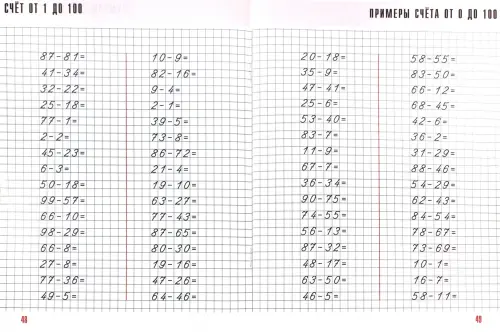 СЧЁТ ОТ 1 ДО 100
87-81=
41-34=
32-22=
25-18=
77-1=
2-2=
45-23=
6-3=
50-18=
99-57=
66-10=
98-29=
66-8=
27-8=
77-36=
49-5=
10-9=
82-16=
9-4=
2-1=
39-5=
73-8=
86-72=
21-4=
19-10=
63-27=
77-43=
87-65=
80-30=
19-16=
47-26=
64-46=
48
ПРИМЕРЫ СЧЁТА ОТ 0 ДО 100
20-18=
35-9=
47-41=
25-6=
53-40=
83-7=
11-9=
67-7=
36-34=
90-75=
74-55=
56-13=
87-32=
48-17=
63-50=
46-5=
58-55=
83-50=
66-12=
68-45=
42-6=
36-2=
31-29=
88-46=
54-29=
62-43=
84-54=
78-67=
73-69=
10-1=
16-7=
58-11=
49